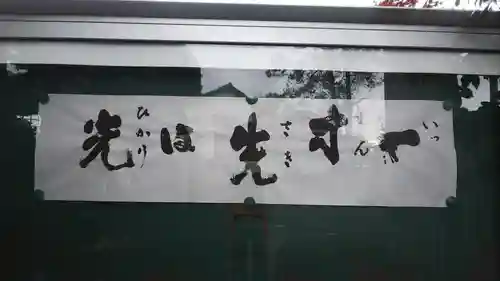 一寸先は光
いっ すん さき ひかり